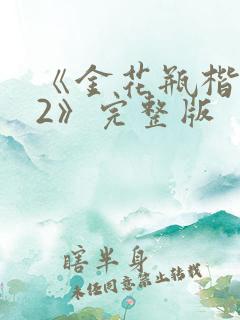 《金花瓶楷
2》完整版
瞎半身
未经同意禁止转载